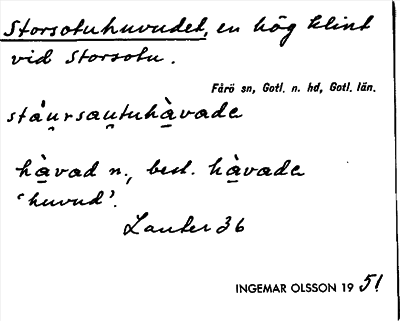 Storsotuhuvudet, en hög klint
vid Storsotu.
Fårö sn, Gotl. n. hd, Gotl. län.
stáu̯rsau̯tuhàvade
hàvad n., best. hàvade
‘huvud’.
Lauter 36
INGEMAR OLSSON 1951